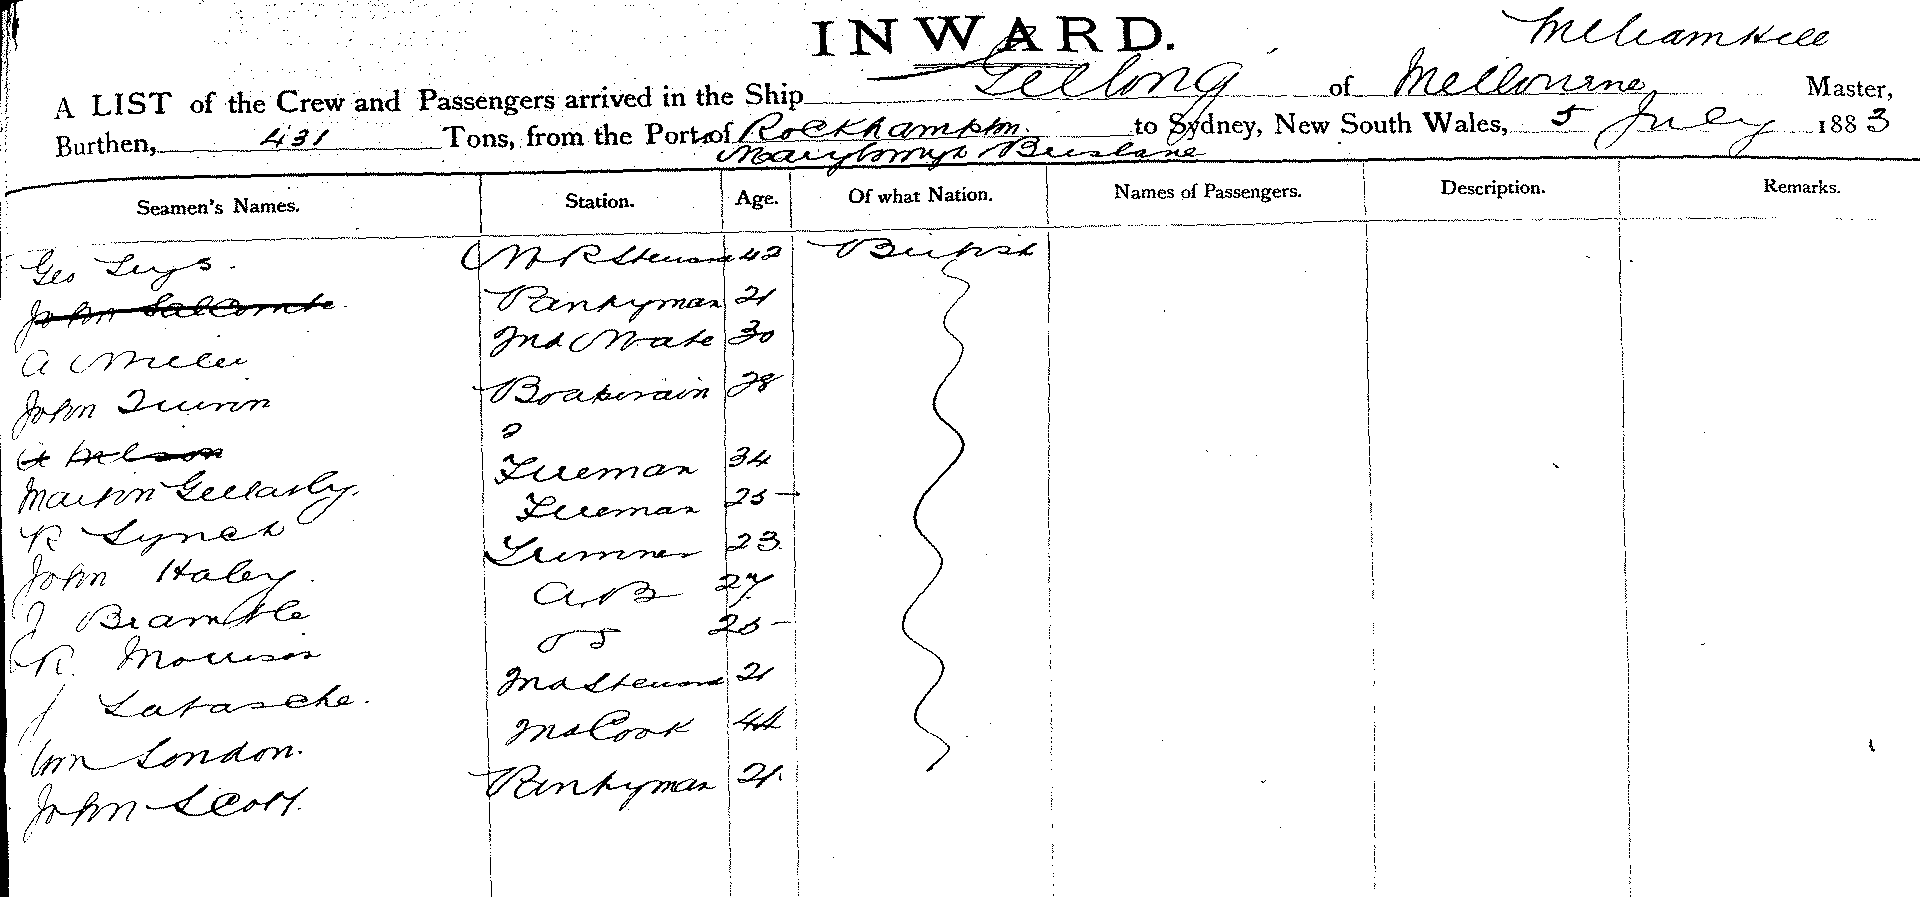 INWARD.
A LIST of the Crew and Passengers arrived in the Ship Geelong of Melbourne Master,
Burthen, 431 Tons, from the Port of Rockhampton to Sydney, New South Wales, 5 July 1883
Maryborough Brisbane
Seamen's Names. Station. Age. Of what Nation. Names of Passengers. Description. Remarks.
Geo 42 British
John Pantryman 21
A Miller 2nd Mate 30
John Quinn Boatswain 28
A Nelson
Martin Fireman 34
R Lynch Fireman 25
John Haley Trimmer 23
J Bramble A.B 27
R. Morrison OS 25
J Latasche. 2nd Steward 21
Wm London. 2nd Cook 44
John Scott. Pantryman 21.